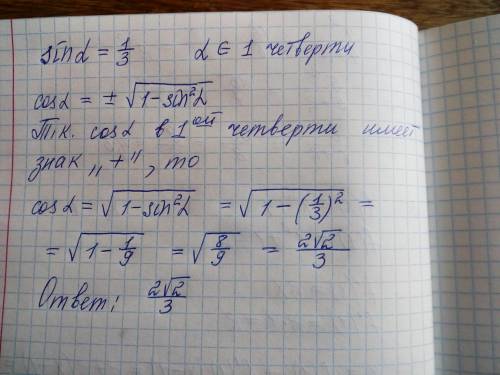 sinα = 1/3   α ∈ 1 четверти
cosα = ± √(1-sin²α)
Т.к. cosα в 1ой четверти имеет
знак „+", то
cosα = √(1-sin²α) = √(1-(1/3)²) =
= √(1-1/9) = √(8/9) = 2√2/3
Ответ: 2√2/3